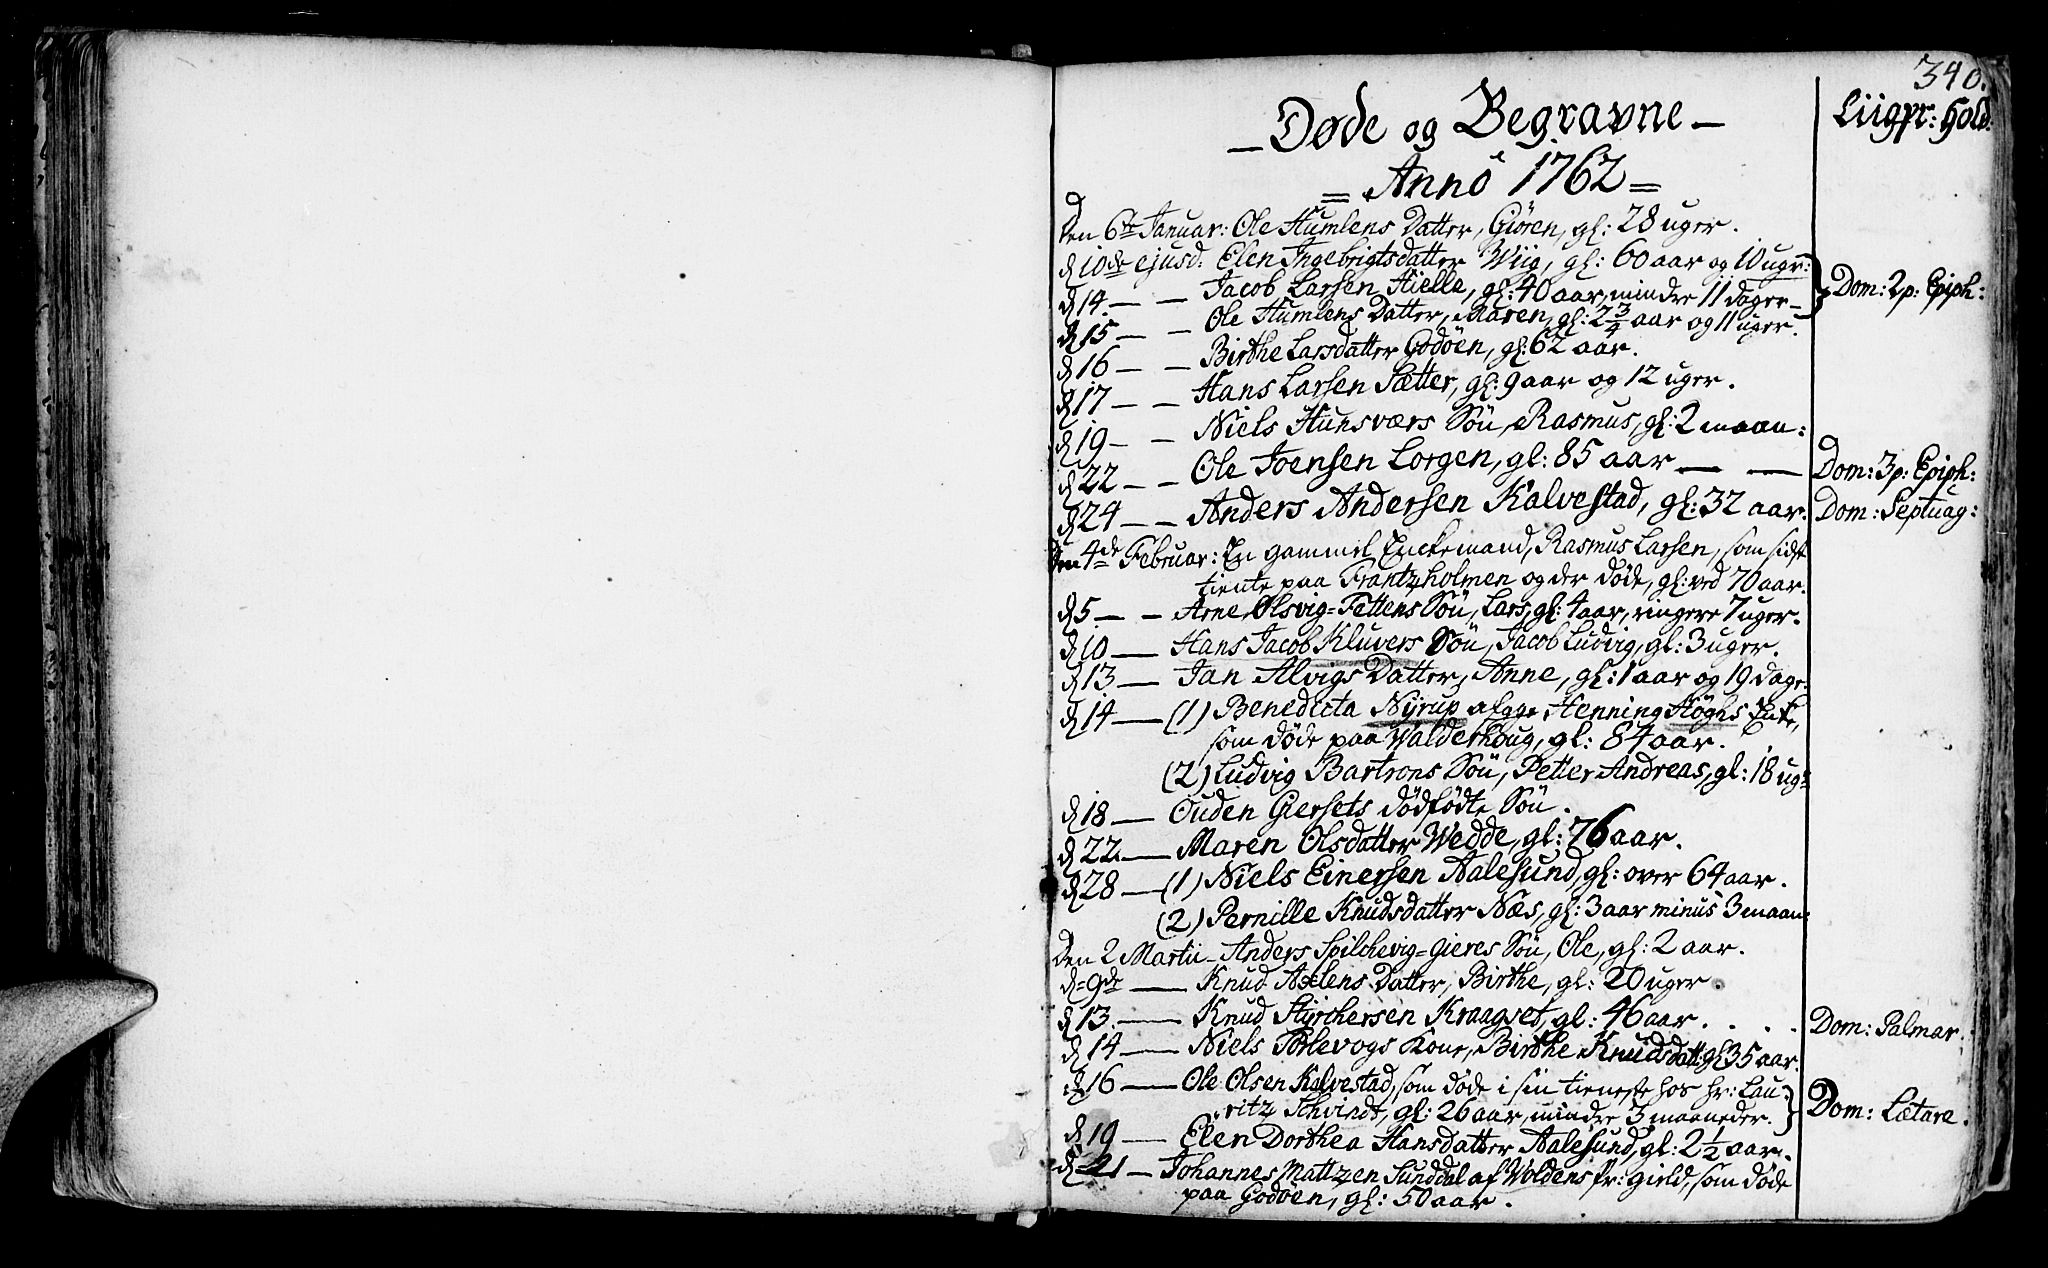 340.
Døde og Begravne
Liigpr: Hold.
Anno 1762
Den 6te Januar: Ole Humlens Datter, Giøren, gl: 28 uger.
d 10de ejusd: Elen Ingebrigtsdatter Wiig, gl: 60 aar og 10 uger
d 14 — — Jacob Larsen Hielle, gl: 40 aar, mindre 11 dager — } Dom: 2 p: Epiph:
d 15 — — Ole Humlens Datter, Maren, gl: 2 3/4 aar og 11 uger.
d 16 — — Birthe Larsdatter Godøen, gl: 62 aar.
d 17 — — Hans Larsen Sætter, gl: 9 aar og 12 uger.
d 19 — — Niels Hunsværs Søn, Rasmus, gl: 2 maan:
d 22 — — Ole Joensen Lorgen, gl: 85 aar — — Dom: 3 p: Epiph:
d 24 — — Anders Andersen Kalvestad, gl: 32 aar. Dom: Septuag:
Den 4de Februar: En gammel Enckemand, Rasmus Larsen, som sidst
tiente paa Frantzholmen og der døde, gl: ved 70 aar.
d 5 — — Arne Olsvig-Fettens Søn, Lars, gl: 4 aar, ringere 7 uger.
d 10 — Hans Jacob Kluvers Søn, Jacob Ludvig, gl: 3 uger.
d 13 — Jan Alvigs Datter, Anne, gl: 1 aar og 19 dage
d 14 — (1) Benedicta Nyrup afgge Henning Høghs Enke,
som døde paa Walderhoug, gl: 84 aar.
(2) Ludvig Bartrons Søn, Petter Andreas, gl: 18 ugr
d 18 — Ouden Giersets dødfødte Søn.
d 22 — Maren Olsdatter Wedde, gl: 76 aar.
d 28 — (1) Niels Einersen Aalesund, gl: over 64 aar.
(2) Pernille Knudsdatter Næs, gl: 3 aar minus 3 maan:
Den 2 Martii — Anders Spilchevig-Gieres Søn, Ole, gl: 2 aar.
d 9de — Knud Axlens Datter, Birthe, gl: 20 uger.
d 13 — Knud Styrchersen Kraagset, gl: 46 aar. . . . Dom: Palmar:
d 14 — Niels Kone, Birthe Knudsdatt gl 35 aar.
d 16 — Ole Olsen Kalvestad, som døde i sin tieneste hos Hr: Lau-
ritz Schvindt, gl: 26 aar, mindre 3 maaneder. } Dom: Lætare.
d 19 — Elen Dorthea Hansdatter Aalesund, gl: 2 1/2 aar.
d 21 — Johannes Mattzen Sunddal af Woldens pr: gield, som døde
paa Godøen, gl: 50 aar.